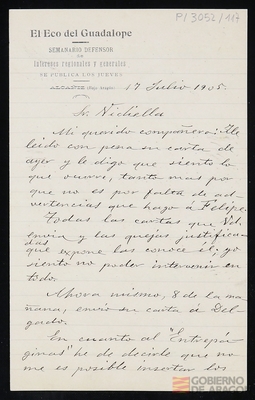 P/3052/117
El Eco del Guadalope
SEMANARIO DEFENSOR
DE
intereses regionales y generales
SE PUBLICA LOS JUEVES
ALCAÑIZ (Bajo Aragón) 17 Julio 1905.
Sr. Nichella
Mi querido compañero: He
leido con pena su carta de
ayer y le digo que siento lo
que ocurre, tanto mas por
que no es por falta de ad-
vertencias que hago á Felipe.
Todas las cartas que Vd.
envia y las quejas justifica-
das que expone las conoce él; yo
siento no poder intervenir en
todo.
Ahora mismo, 8 de la ma-
ñana, envio su carta de Del-
gado.
En cuanto al "Entrepá-
ginas" he de decirle que no
me es posible insertar los
GOBIERNO
DE ARAGON